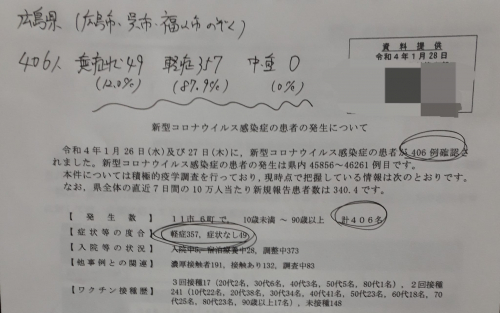 広島県 (広島市、呉市、福山市のぞく)
406人 無症状49 軽症357 中・重 0
(12.0%) (87.9%) (0%)
資料提供
令和4年1月28日
新型コロナウイルス感染症の患者の発生について
令和4年1月26日(水)及び27日(木)に、新型コロナウイルス感染症の患者が406例確認さ
れました。新型コロナウイルス感染症の患者の発生は県内45856～46261例目です。
本件については積極的疫学調査を行っており、現時点で把握している情報は次のとおりです。
なお、県全体の直近7日間の10万人当たり新規報告患者数は340.4です。
【発生数】 11市6町で、10歳未満～90歳以上 計406名
【症状等の度合】 軽症357、症状なし49
【入院等の状況】 入院中5、宿泊療養中28、調整中373
【他事例との関連】 濃厚接触者191、接触あり132、調査中83
【ワクチン接種歴】 3回接種17(20代2名、30代6名、40代3名、50代5名、80代1名)、2回接種
241(10代22名、20代38名、30代34名、40代41名、50代23名、60代18名、70
代25名、80代23名、90歳以上17名)、未接種148